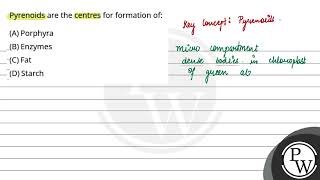 Pyrenoids are the centres for formation of:
(A) Porphyra
(B) Enzymes
(C) Fat
(D) Starch
Key concept: Pyrenoids.
micro compartment
dense bodies in chloroplast
of green al
PW